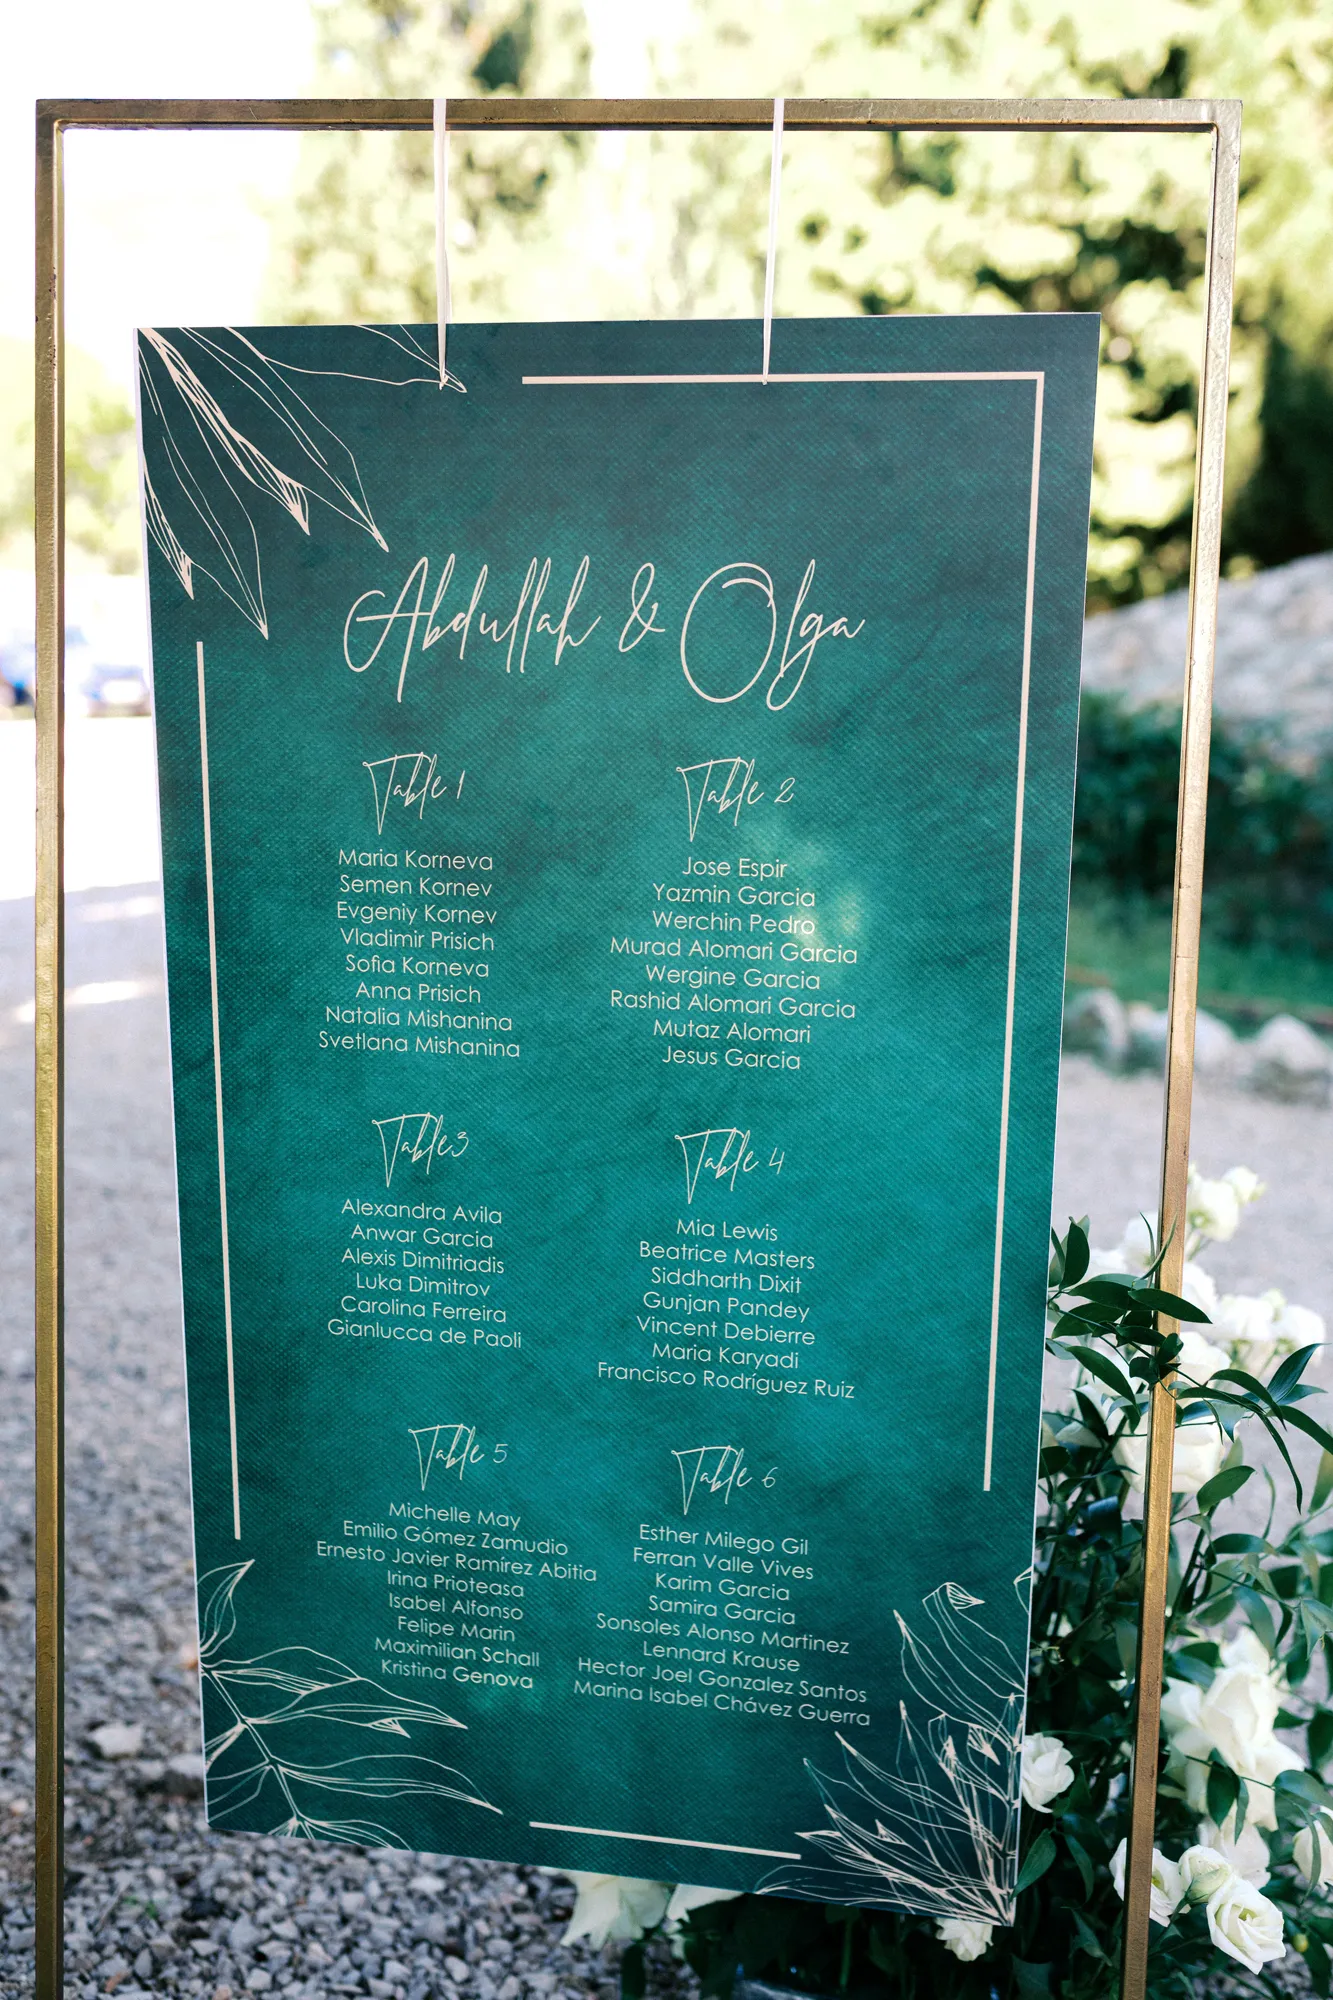 Abdullah & Olga
Table 1
Maria Korneva
Semen Kornev
Evgeniy Kornev
Vladimir Prisich
Sofia Korneva
Anna Prisich
Natalia Mishanina
Svetlana Mishanina
Table 2
Jose Espir
Yazmin Garcia
Werchin Pedro
Murad Alomari Garcia
Wergine Garcia
Rashid Alomari Garcia
Mutaz Alomari
Jesus Garcia
Table 3
Alexandra Avila
Anwar Garcia
Alexis Dimitriadis
Luka Dimitrov
Carolina Ferreira
Gianlucca de Paoli
Table 4
Mia Lewis
Beatrice Masters
Siddharth Dixit
Gunjan Pandey
Vincent Debierre
Maria Karyadi
Francisco Rodríguez Ruiz
Table 5
Michelle May
Emilio Gómez Zamudio
Ernesto Javier Ramírez Abitia
Irina Prioteasa
Isabel Alfonso
Felipe Marin
Maximilian Schall
Kristina Genova
Table 6
Esther Milego Gil
Ferran Valle Vives
Karim Garcia
Samira Garcia
Sonsoles Alonso Martinez
Lennard Krause
Hector Joel Gonzalez Santos
Marina Isabel Chávez Guerra